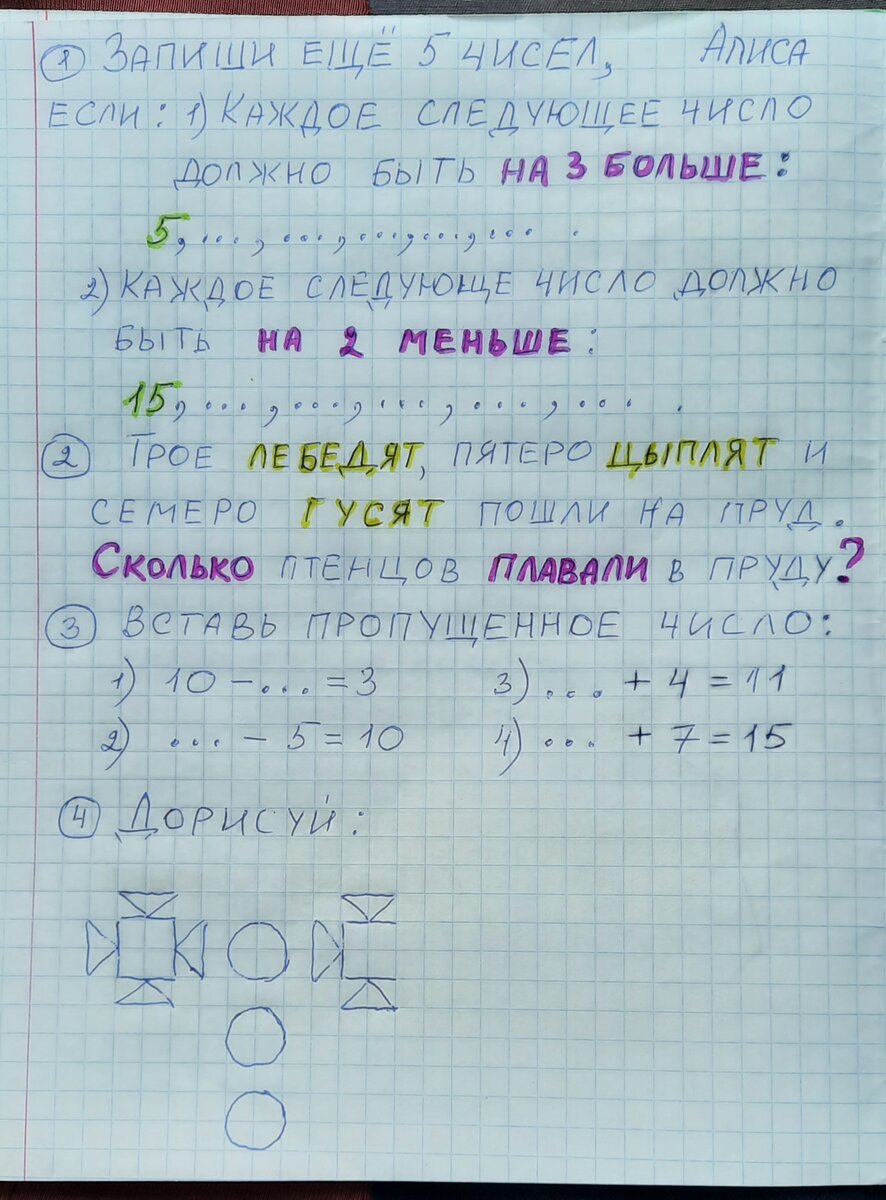 1 ЗАПИШИ ЕЩЁ 5 ЧИСЕЛ, АЛИСА
ЕСЛИ: 1) КАЖДОЕ СЛЕДУЮЩЕЕ ЧИСЛО
ДОЛЖНО БЫТЬ НА 3 БОЛЬШЕ:
5, ..., ..., ..., ..., ... .
2) КАЖДОЕ СЛЕДУЮЩЕ ЧИСЛО ДОЛЖНО
БЫТЬ НА 2 МЕНЬШЕ:
15, ..., ..., ..., ..., ... .
2 ТРОЕ ЛЕБЕДЯТ, ПЯТЕРО ЦЫПЛЯТ И
СЕМЕРО ГУСЯТ ПОШЛИ НА ПРУД.
СКОЛЬКО ПТЕНЦОВ ПЛАВАЛИ В ПРУДУ?
3 ВСТАВЬ ПРОПУЩЕННОЕ ЧИСЛО:
1) 10 - ... = 3 3) ... + 4 = 11
2) ... - 5 = 10 4) ... + 7 = 15
4 ДОРИСУЙ: